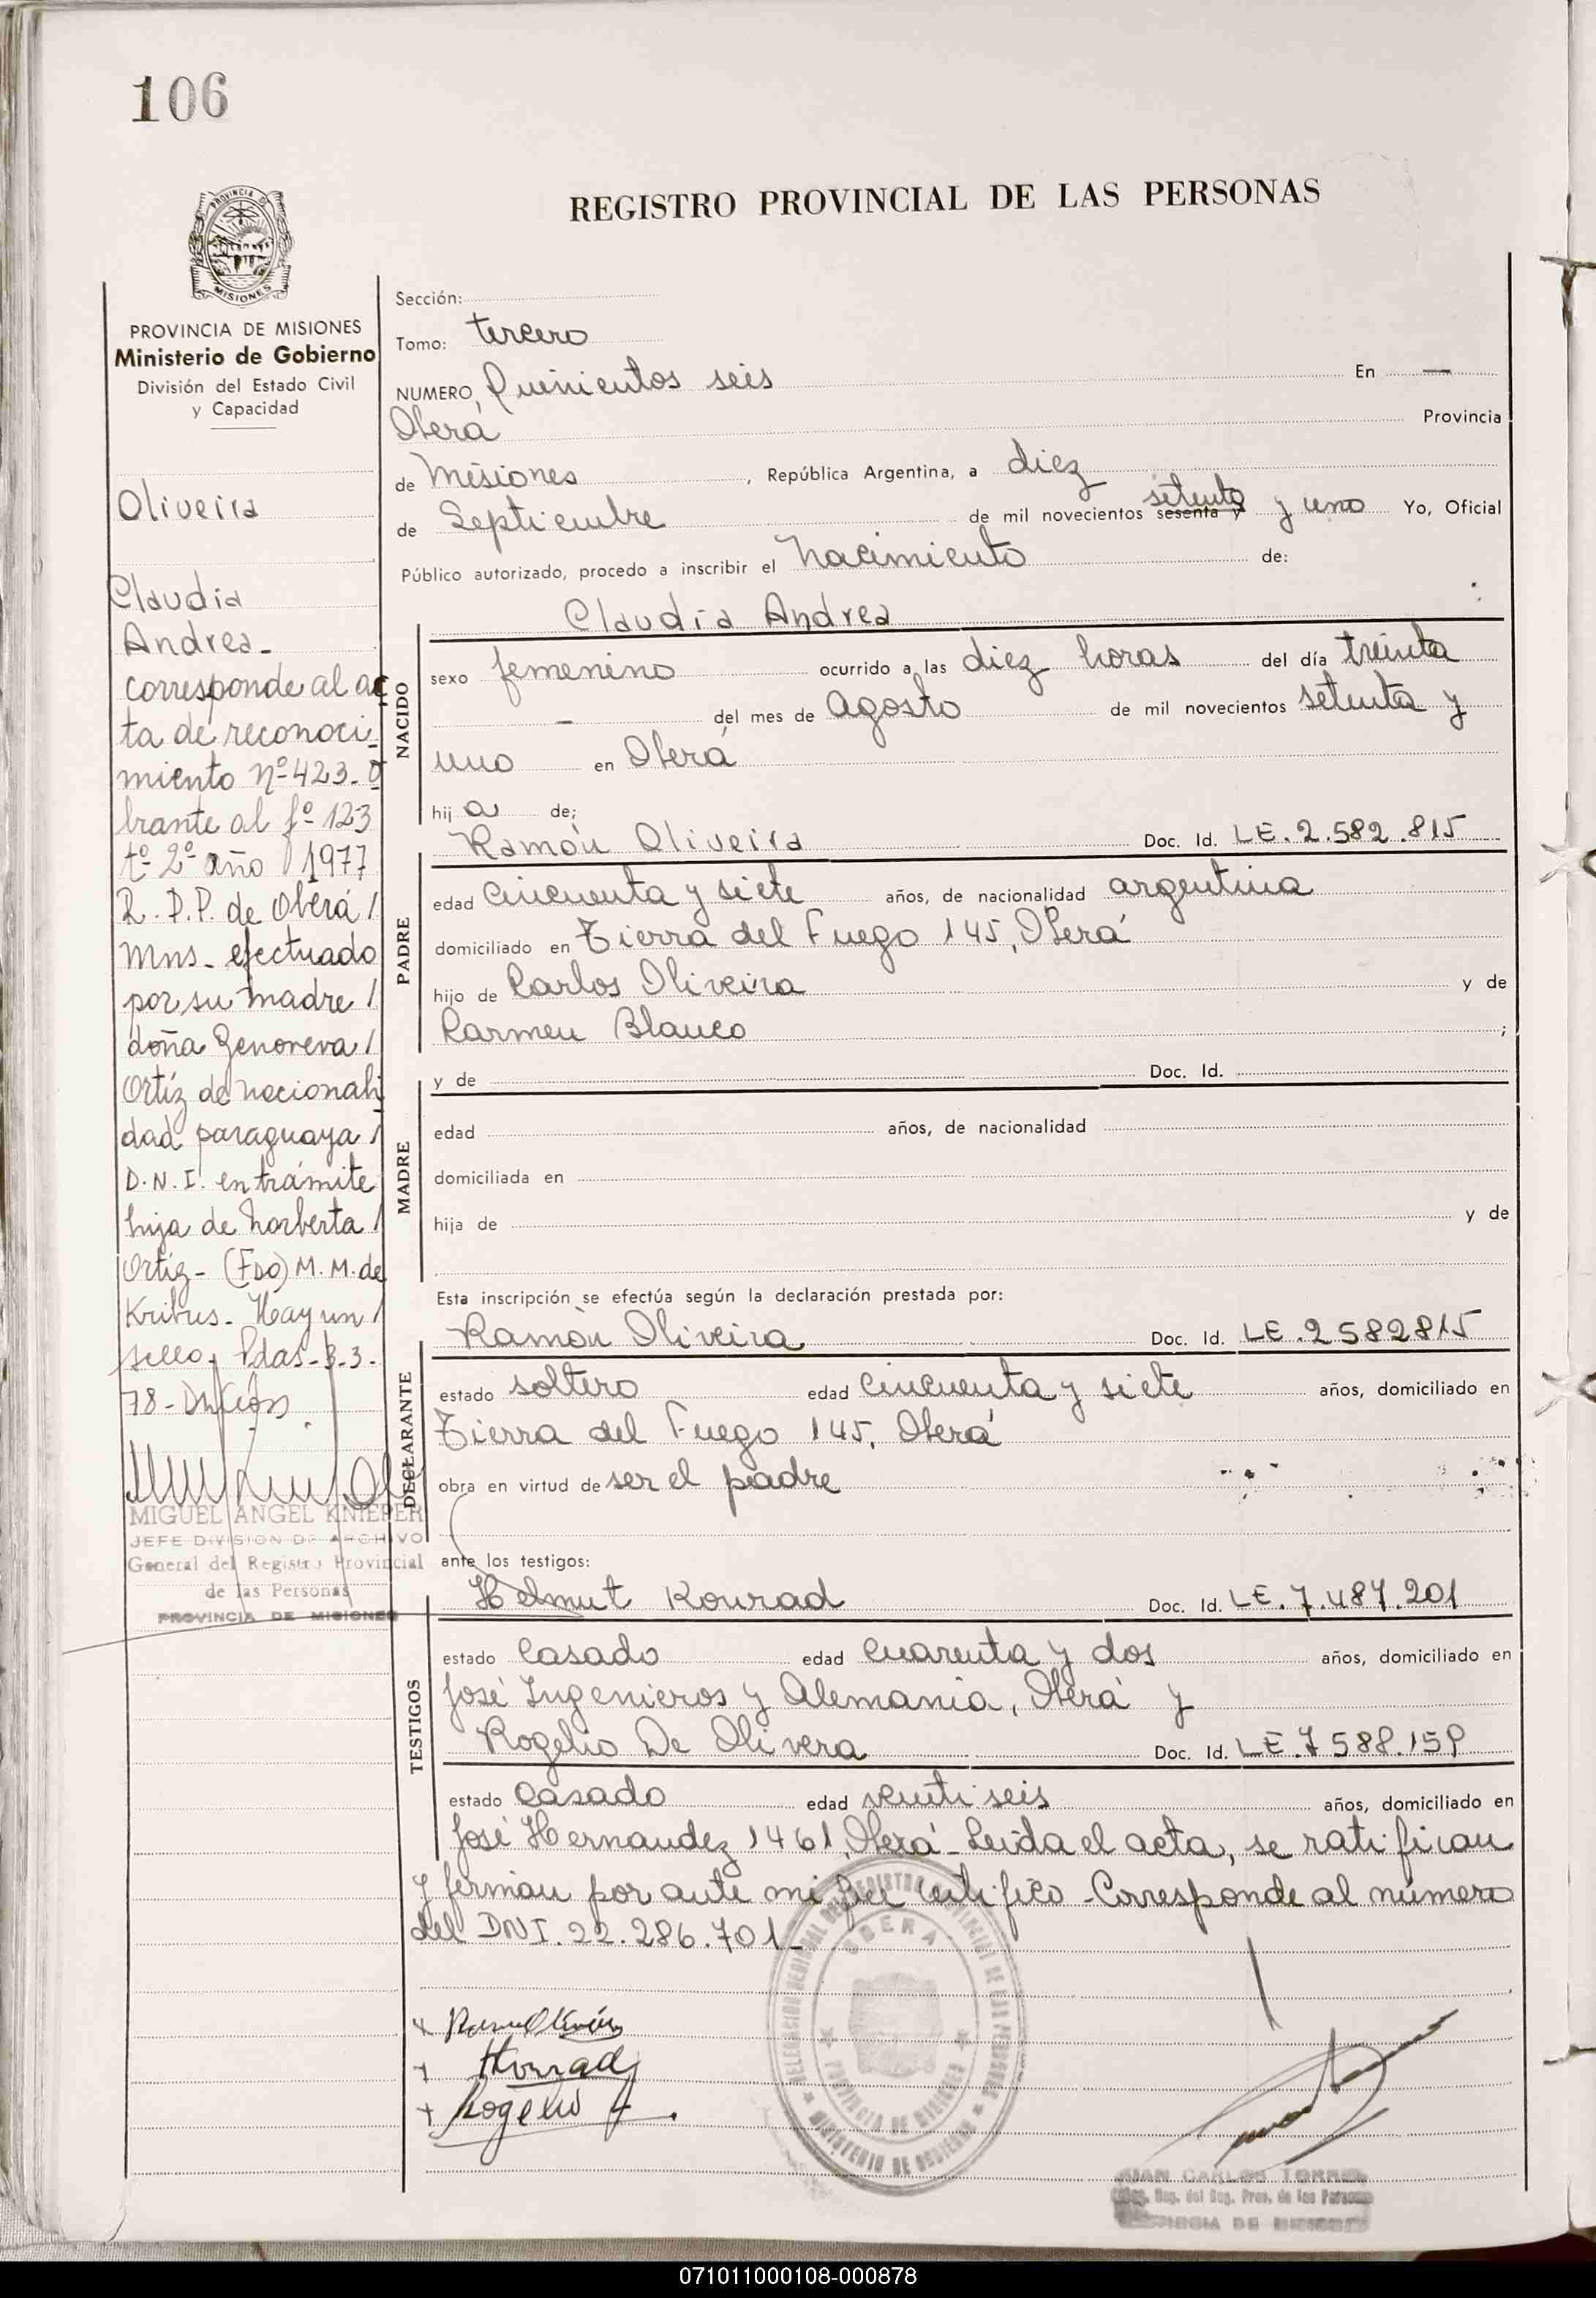 106
REGISTRO PROVINCIAL DE LAS PERSONAS
PROVINCIA
MISIONES
PROVINCIA DE MISIONES
Ministerio de Gobierno
División del Estado Civil
y Capacidad
Oliveira
Claudia
Andrea-
corresponde al ac
ta de reconoci-
miento nº 423- o
brante al fº 123
tº 2º año 1977
R. P.P. de Oberá/
Mns- efectuado
por su madre/
doña Genoveva/
Ortíz de nacionali
dad paraguaya/
D.N.I. en trámite
hija de Norberta/
Ortiz- (Fdo) M.M. de
Kribus- Hay un/
sello, Pdas- 3-3-
78-
MIGUEL ANGEL KNIEPER
JEFE DIVISION DE ARCHIVO
General del Registro Provincial
de las Personas
PROVINCIA DE MISIONES
Sección:
Tomo: tercero
NUMERO, Quinientos seis En —
Oberá Provincia
de Misiones, República Argentina, a diez
de Septiembre de mil novecientos sesenta y setenta y uno Yo, Oficial
Público autorizado, procedo a inscribir el Nacimiento de:
Claudia Andrea
NACIDO
sexo femenino ocurrido a las diez horas del día treinta
— del mes de Agosto de mil novecientos setenta y
uno en Oberá
hij a de;
Ramón Oliveira Doc. Id. LE.2.582.815
PADRE
edad cincuenta y siete años, de nacionalidad argentina
domiciliado en Tierra del Fuego 145, Oberá
hijo de Carlos Oliveira y de
Carmen Blanco ;
y de Doc. Id.
MADRE
edad años, de nacionalidad
domiciliada en
hija de y de
Esta inscripción se efectúa según la declaración prestada por:
Ramón Oliveira Doc. Id. LE.2582815
DECLARANTE
estado soltero edad cincuenta y siete años, domiciliado en
Tierra del Fuego 145, Oberá
obra en virtud de ser el padre
ante los testigos:
Helmut Konrad Doc. Id. LE.7.487.201
TESTIGOS
estado Casado edad cuarenta y dos años, domiciliado en
José Ingenieros y Alemania, Oberá y
Rogelio De Olivera Doc. Id. LE.7588.159
estado Casado edad veinti seis años, domiciliado en
José Hernandez 1461, Oberá- Leida el acta, se ratifican
y firman por ante mi que certifico - Corresponde al número
del DNI. 22.286.701-
Konrad
Rogelio
OBERA
PROVINCIA DE MISIONES
MINISTERIO DE GOBIERNO
JUAN CARLOS TORRES
071011000108-000878